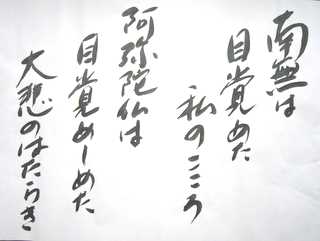 南無は
目覚めた
私のこころ
阿弥陀仏は
目覚めしめた
大悲のはたらき